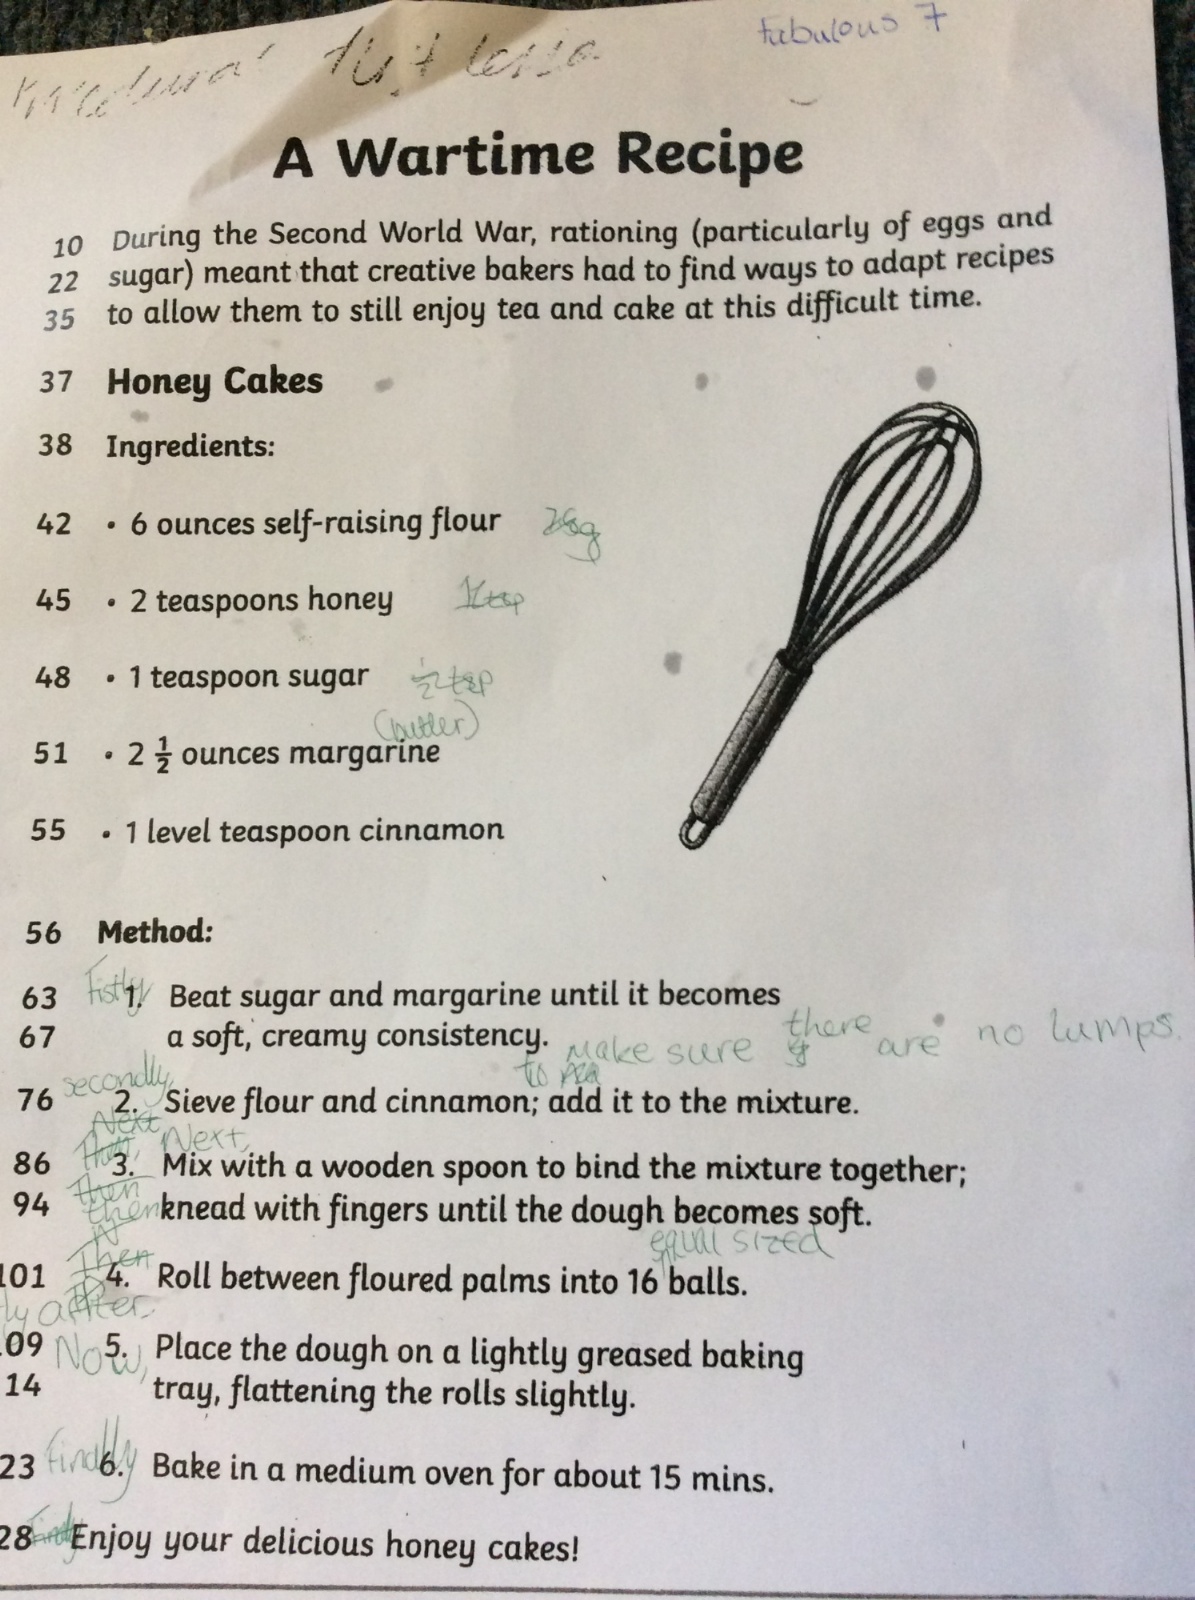 Fabulous 7
A Wartime Recipe
10 During the Second World War, rationing (particularly of eggs and
22 sugar) meant that creative bakers had to find ways to adapt recipes
35 to allow them to still enjoy tea and cake at this difficult time.
37 Honey Cakes
38 Ingredients:
42 • 6 ounces self-raising flour
45 • 2 teaspoons honey 1 tsp
48 • 1 teaspoon sugar ½ tsp
(butter)
51 • 2 ½ ounces margarine
55 • 1 level teaspoon cinnamon
56 Method:
63 Fistly 1. Beat sugar and margarine until it becomes
67 a soft, creamy consistency. Make sure there are no lumps.
to
76 secondly, 2. Sieve flour and cinnamon; add it to the mixture.
Next
Then, Next,
86 3. Mix with a wooden spoon to bind the mixture together;
then
94 then knead with fingers until the dough becomes soft.
equal sized
Then
101 4. Roll between floured palms into 16 balls.
ly after
09 Now, 5. Place the dough on a lightly greased baking
14 tray, flattening the rolls slightly.
23 Finally 6. Bake in a medium oven for about 15 mins.
28 Enjoy your delicious honey cakes!